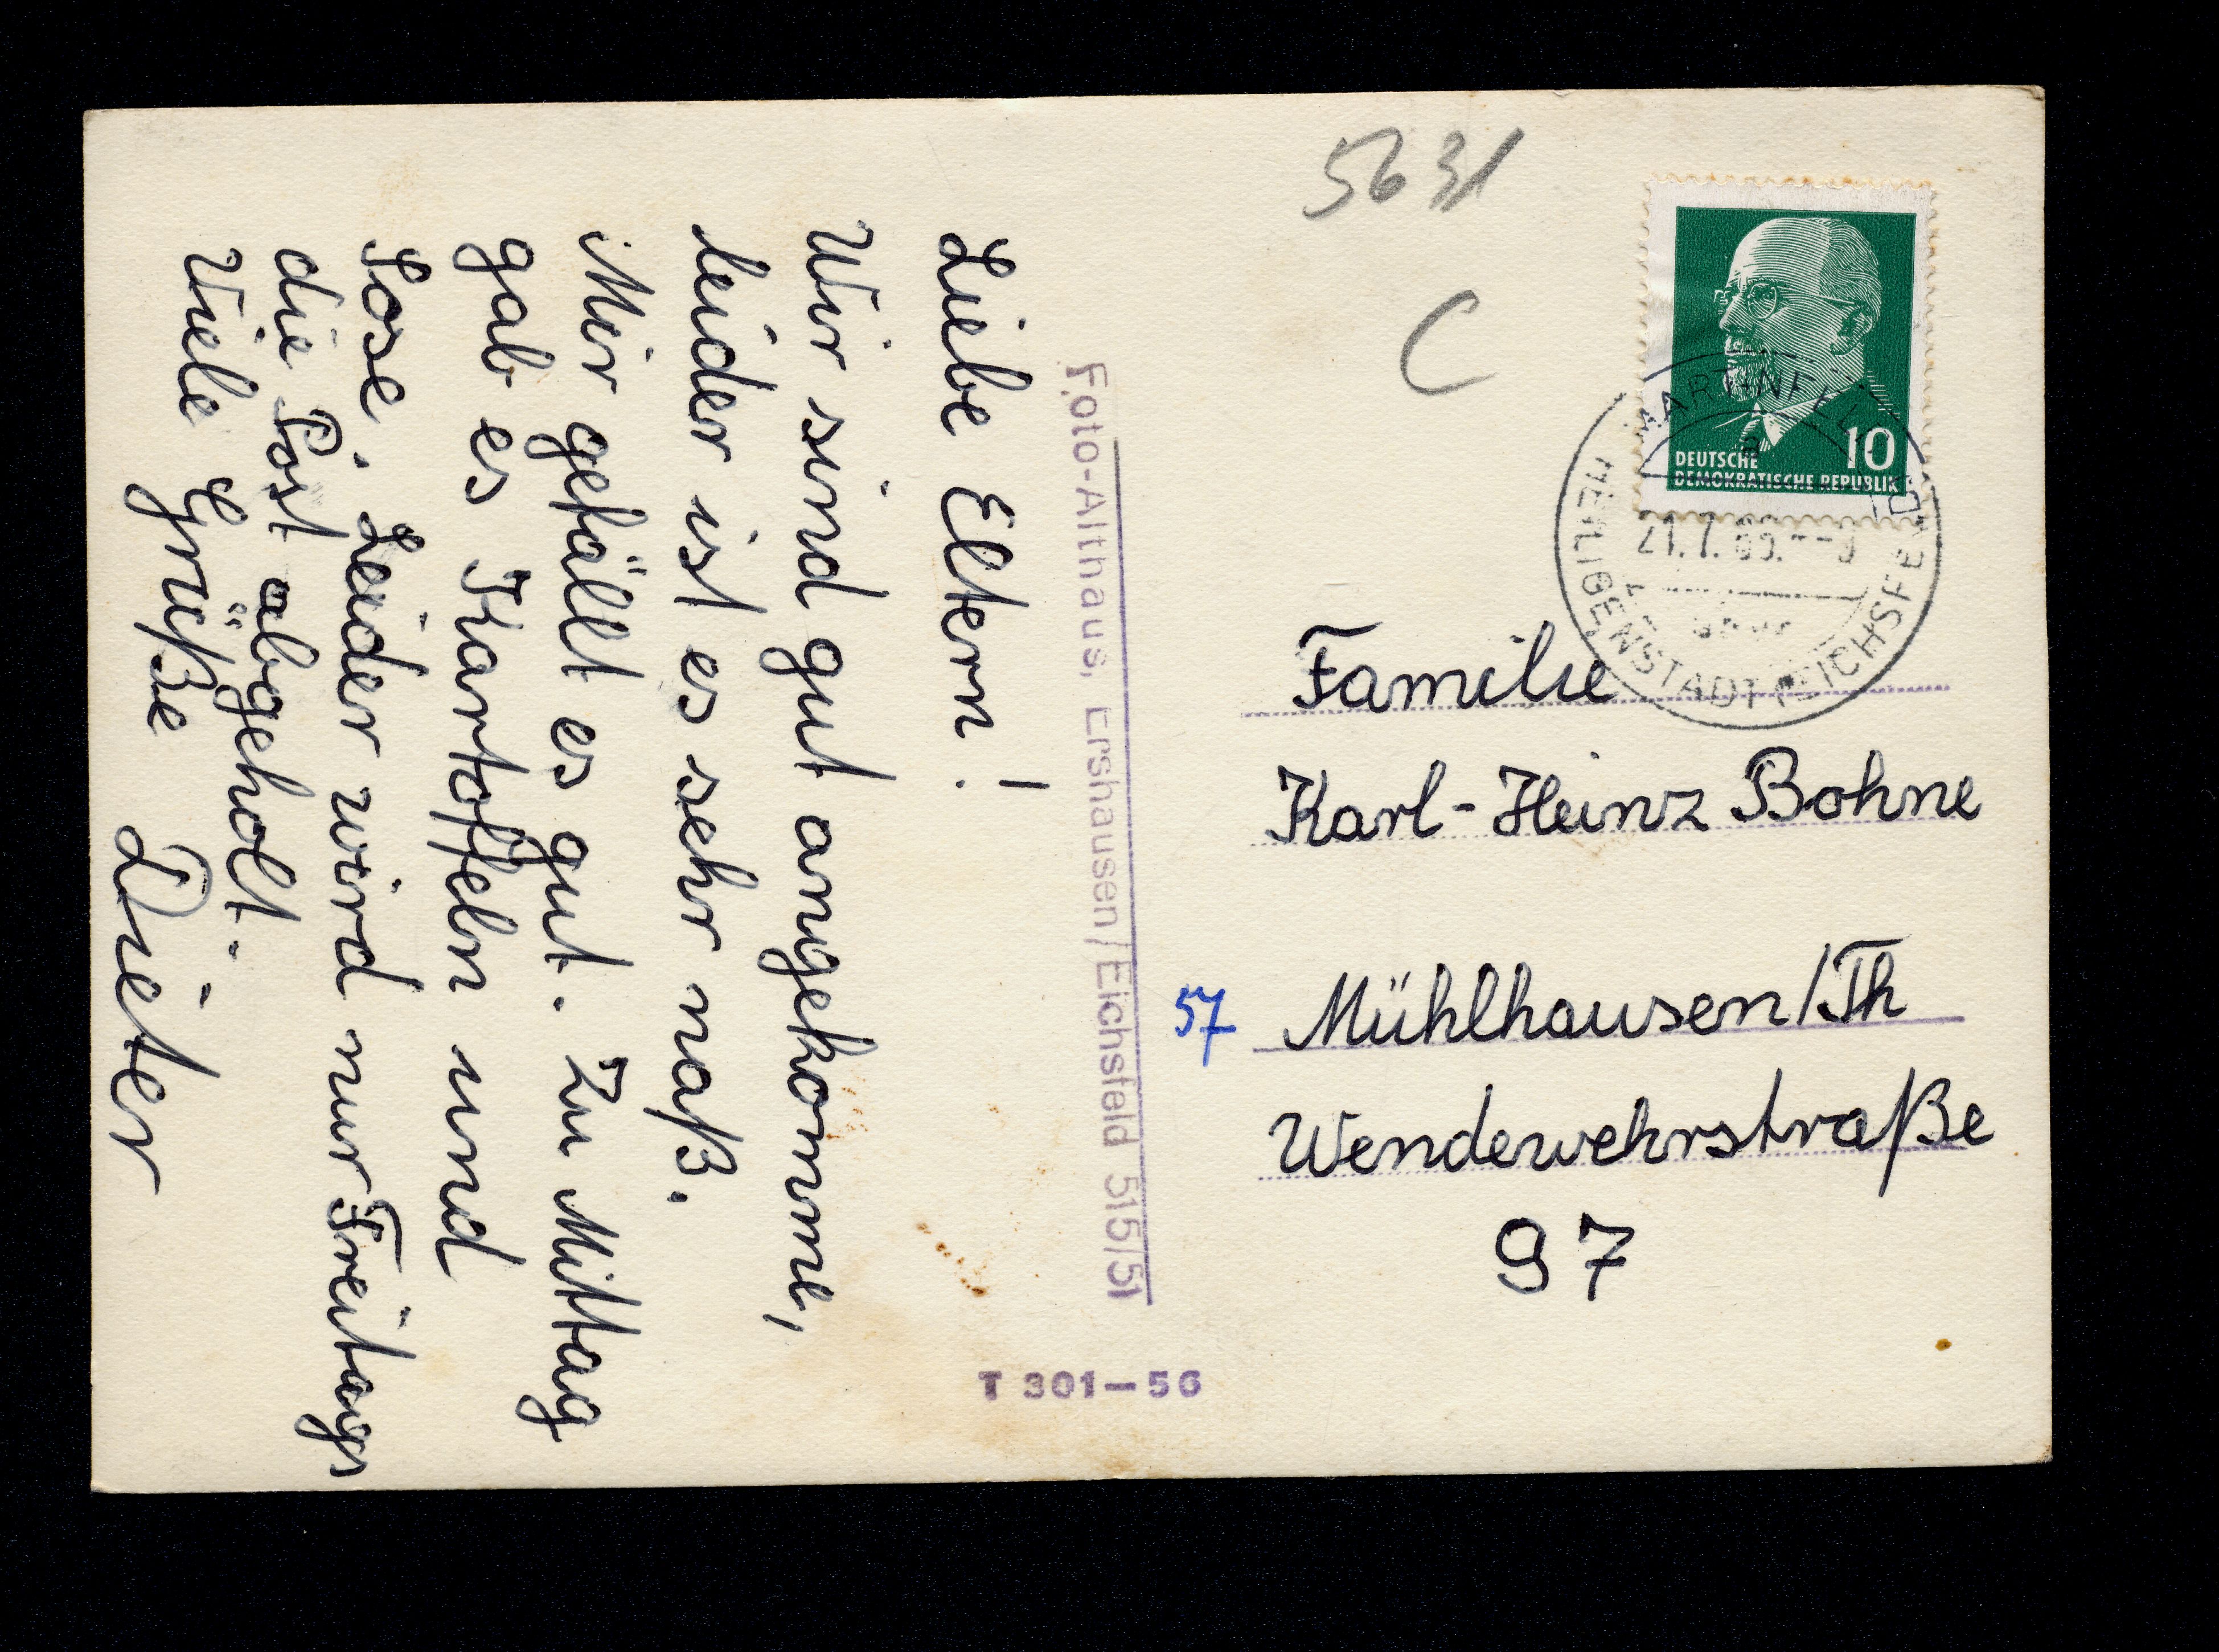 Liebe Eltern!
Wir sind gut angekomme,
leider ist es sehr naß.
Mir gefällt es gut. Zu Mittag
gab es Kartoffeln und
Sose. Leider wird nur Freitags
die Post abgeholt.
Viele Grüße Dieter
Foto-Althaus, Ershausen/Eichsfeld 515/51
T 301-56
5631
C
10
DEUTSCHE
DEMOKRATISCHE REPUBLIK
MARTINFELD
HEILIGENSTADT EICHSFELD
Familie
Karl-Heinz Bohne
57 Mühlhausen/Th
Wendewehrstraße
97